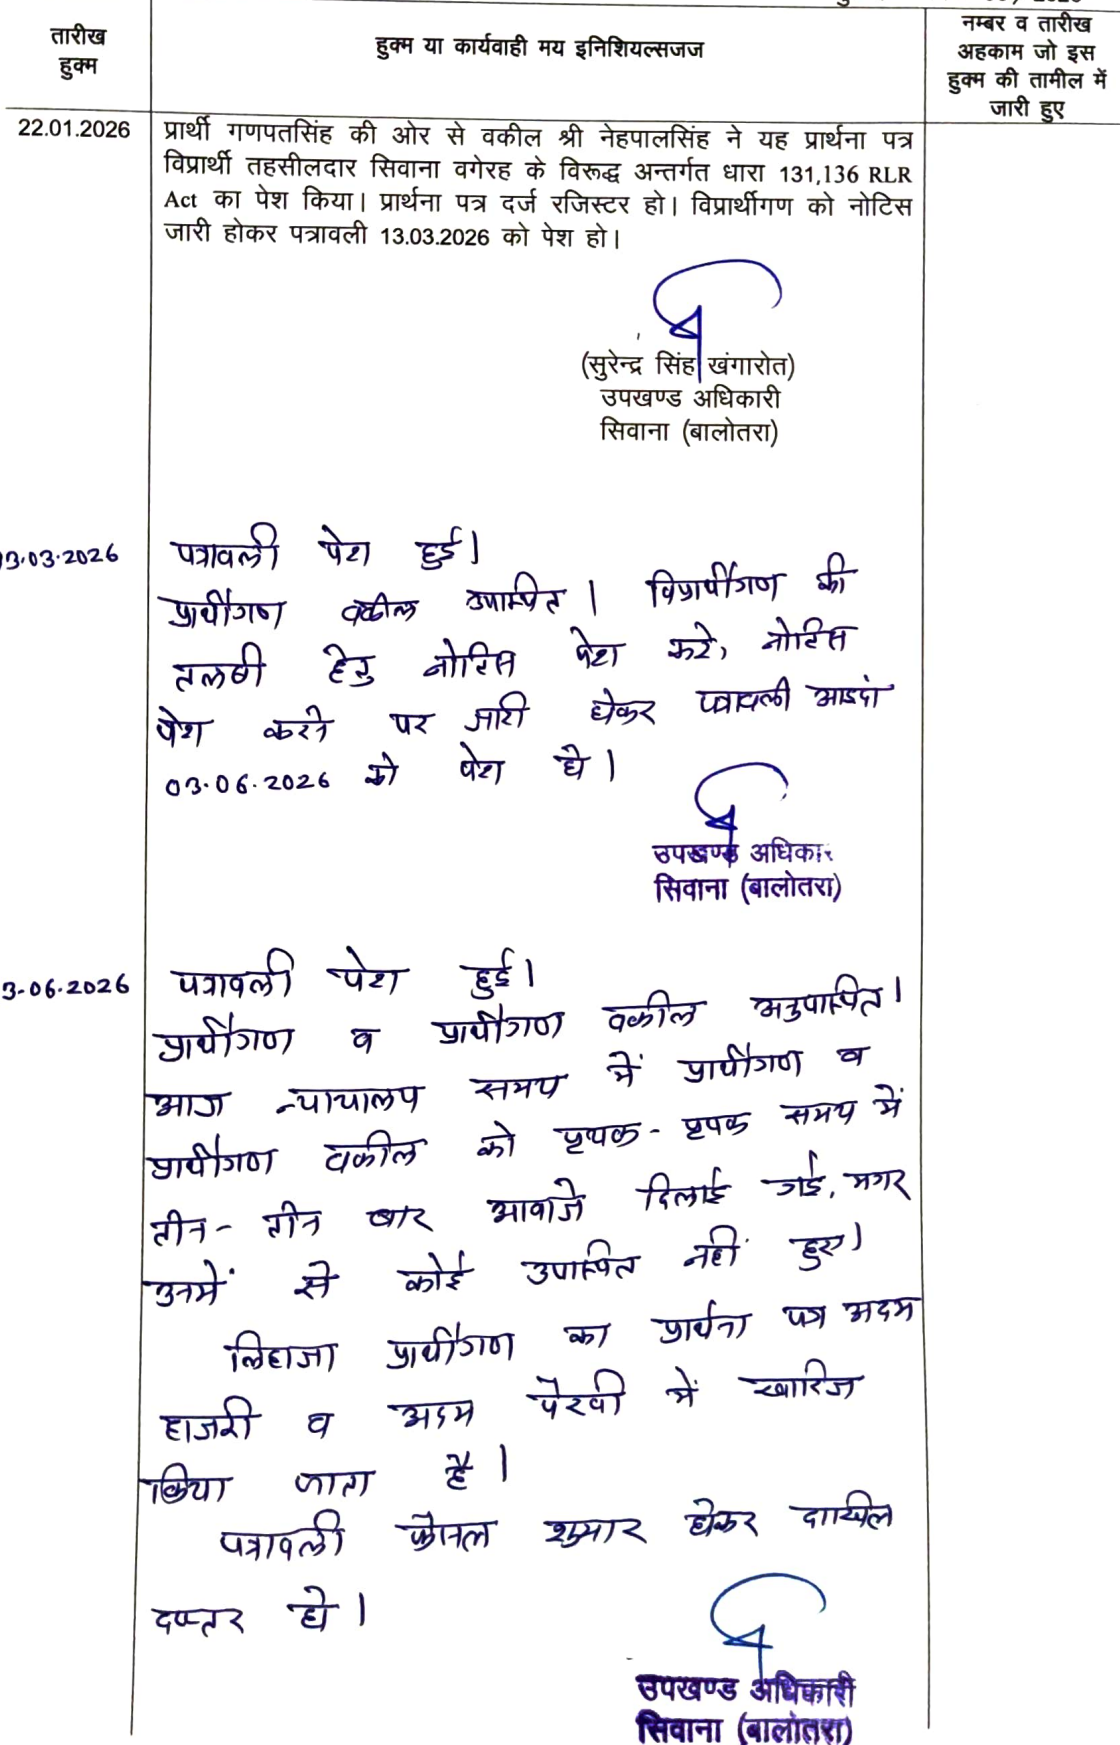 तारीख
हुक्म
हुक्म या कार्यवाही मय इनिशियल्सजज
नम्बर व तारीख
अहकाम जो इस
हुक्म की तामील में
जारी हुए
22.01.2026
प्रार्थी गणपतसिंह की ओर से वकील श्री नेहपालसिंह ने यह प्रार्थना पत्र
विप्रार्थी तहसीलदार सिवाना वगेरह के विरूद्ध अन्तर्गत धारा 131,136 RLR
Act का पेश किया। प्रार्थना पत्र दर्ज रजिस्टर हो। विप्रार्थीगण को नोटिस
जारी होकर पत्रावली 13.03.2026 को पेश हो।
(सुरेन्द्र सिंह खंगारोत)
उपखण्ड अधिकारी
सिवाना (बालोतरा)
13.03.2026
पत्रावली पेश हुई।
प्रार्थीगण वकील उपस्थित। विप्रार्थीगण की
तलबी हेतु नोटिस पेश करे, नोटिस
पेश करने पर जारी होकर पत्रावली आइंदा
03.06.2026 को पेश हो।
उपखण्ड अधिकार
सिवाना (बालोतरा)
3.06.2026
पत्रावली पेश हुई।
प्रार्थीगण व प्रार्थीगण वकील अनुपस्थित।
आज न्यायालय समय में प्रार्थीगण व
प्रार्थीगण वकील को पृथक-पृथक समय में
तीन-तीन बार आवाजे दिलाई गई, मगर
उनमें से कोई उपस्थित नहीं हुए।
लिहाजा प्रार्थीगण का प्रार्थना पत्र अदम
हाजरी व अदम पैरवी में खारिज
किया जाता है।
पत्रावली फैसल शुमार होकर दाखिल
दफ्तर हो।
उपखण्ड अधिकारी
सिवाना (बालोतरा)